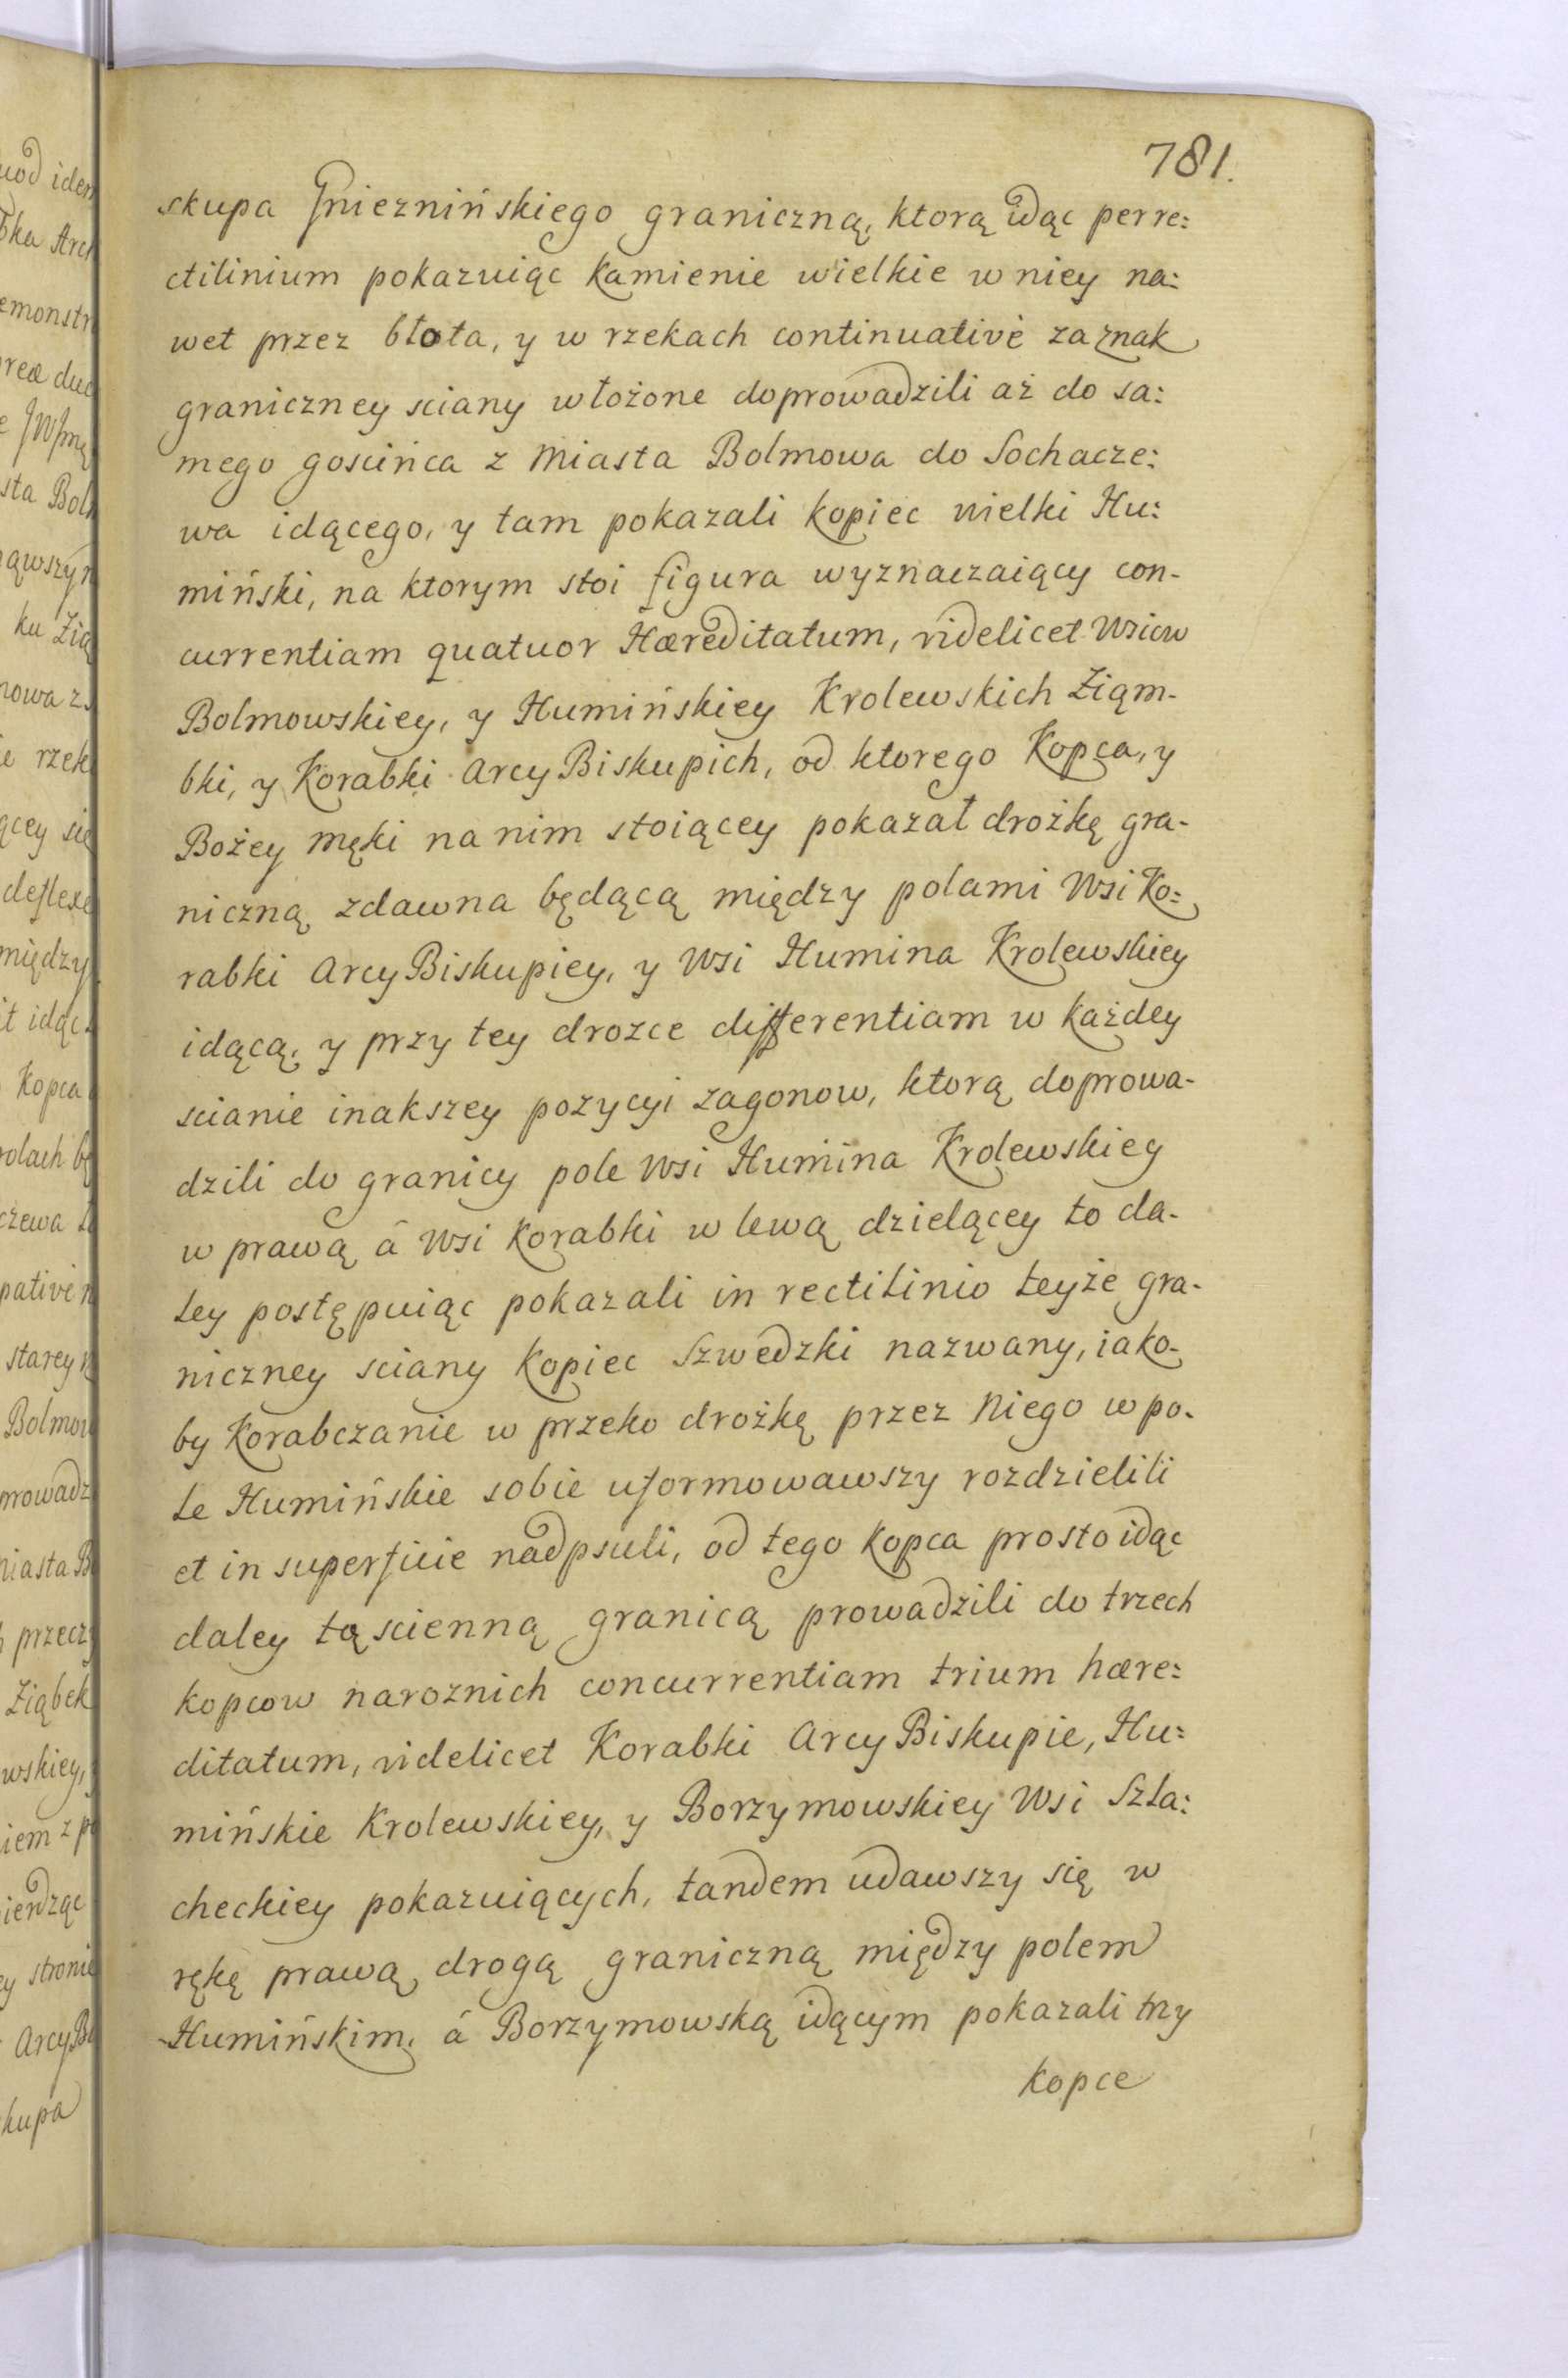 781.
skupa Gnieznińskiego graniczną, ktorą idąc perre:
ctilinium pokazuiąc kamienie wielkie w niey na:
wet przez błota, y w rzekach continuativè za znak
graniczney sciany włożone doprowadzili aż do sa:
mego goscińca z Miasta Bolmowa do Sochacze:
wa idącego, y tam pokazali kopiec wielki Hu:
miński, na ktorym stoi figura wyznaczaiący con-
currentiam quatuor Hæreditatum, videlicet Wsiow
Bolmowskiey, y Humińskiey Krolewskich Ziąm-
bki, y Korabki Arcy Biskupich, od ktorego Kopca, y
Bożey męki na nim stoiącey pokazał drożkę gra-
niczną zdawna będącą między polami Wsi Ko:
rabki Arcy Biskupiey, y Wsi Humina Krolewskiey
idącą, y przy tey drozce differentiam w każdey
scianie inakszey pozycyi zagonow, ktorą doprowa-
dzili do granicy pole Wsi Humina Krolewskiey
w prawą á Wsi Korabki w lewą dzielącey to da-
ley postępuiąc pokazali in rectilinio teyże gra-
niczney sciany Kopiec Szwedzki nazwany, iako-
by Korabczanie w przeko drożkę przez Niego w po-
le Humińskie sobie uformowawszy rozdzielili
et in superficie nadpsuli, od tego kopca prosto idąc
daley tą scienną granicą prowadzili do trzech
kopcow naroznich concurrentiam trium hære:
ditatum, videlicet Korabki Arcy Biskupie, Hu:
mińskie Krolewskiey, y Borzymowskiey Wsi Szla:
checkiey pokazuiących, tandem udawszy się w
rękę prawą drogą graniczną między polem
Humińskim, á Borzymowską idącym pokazali trzy
kopce